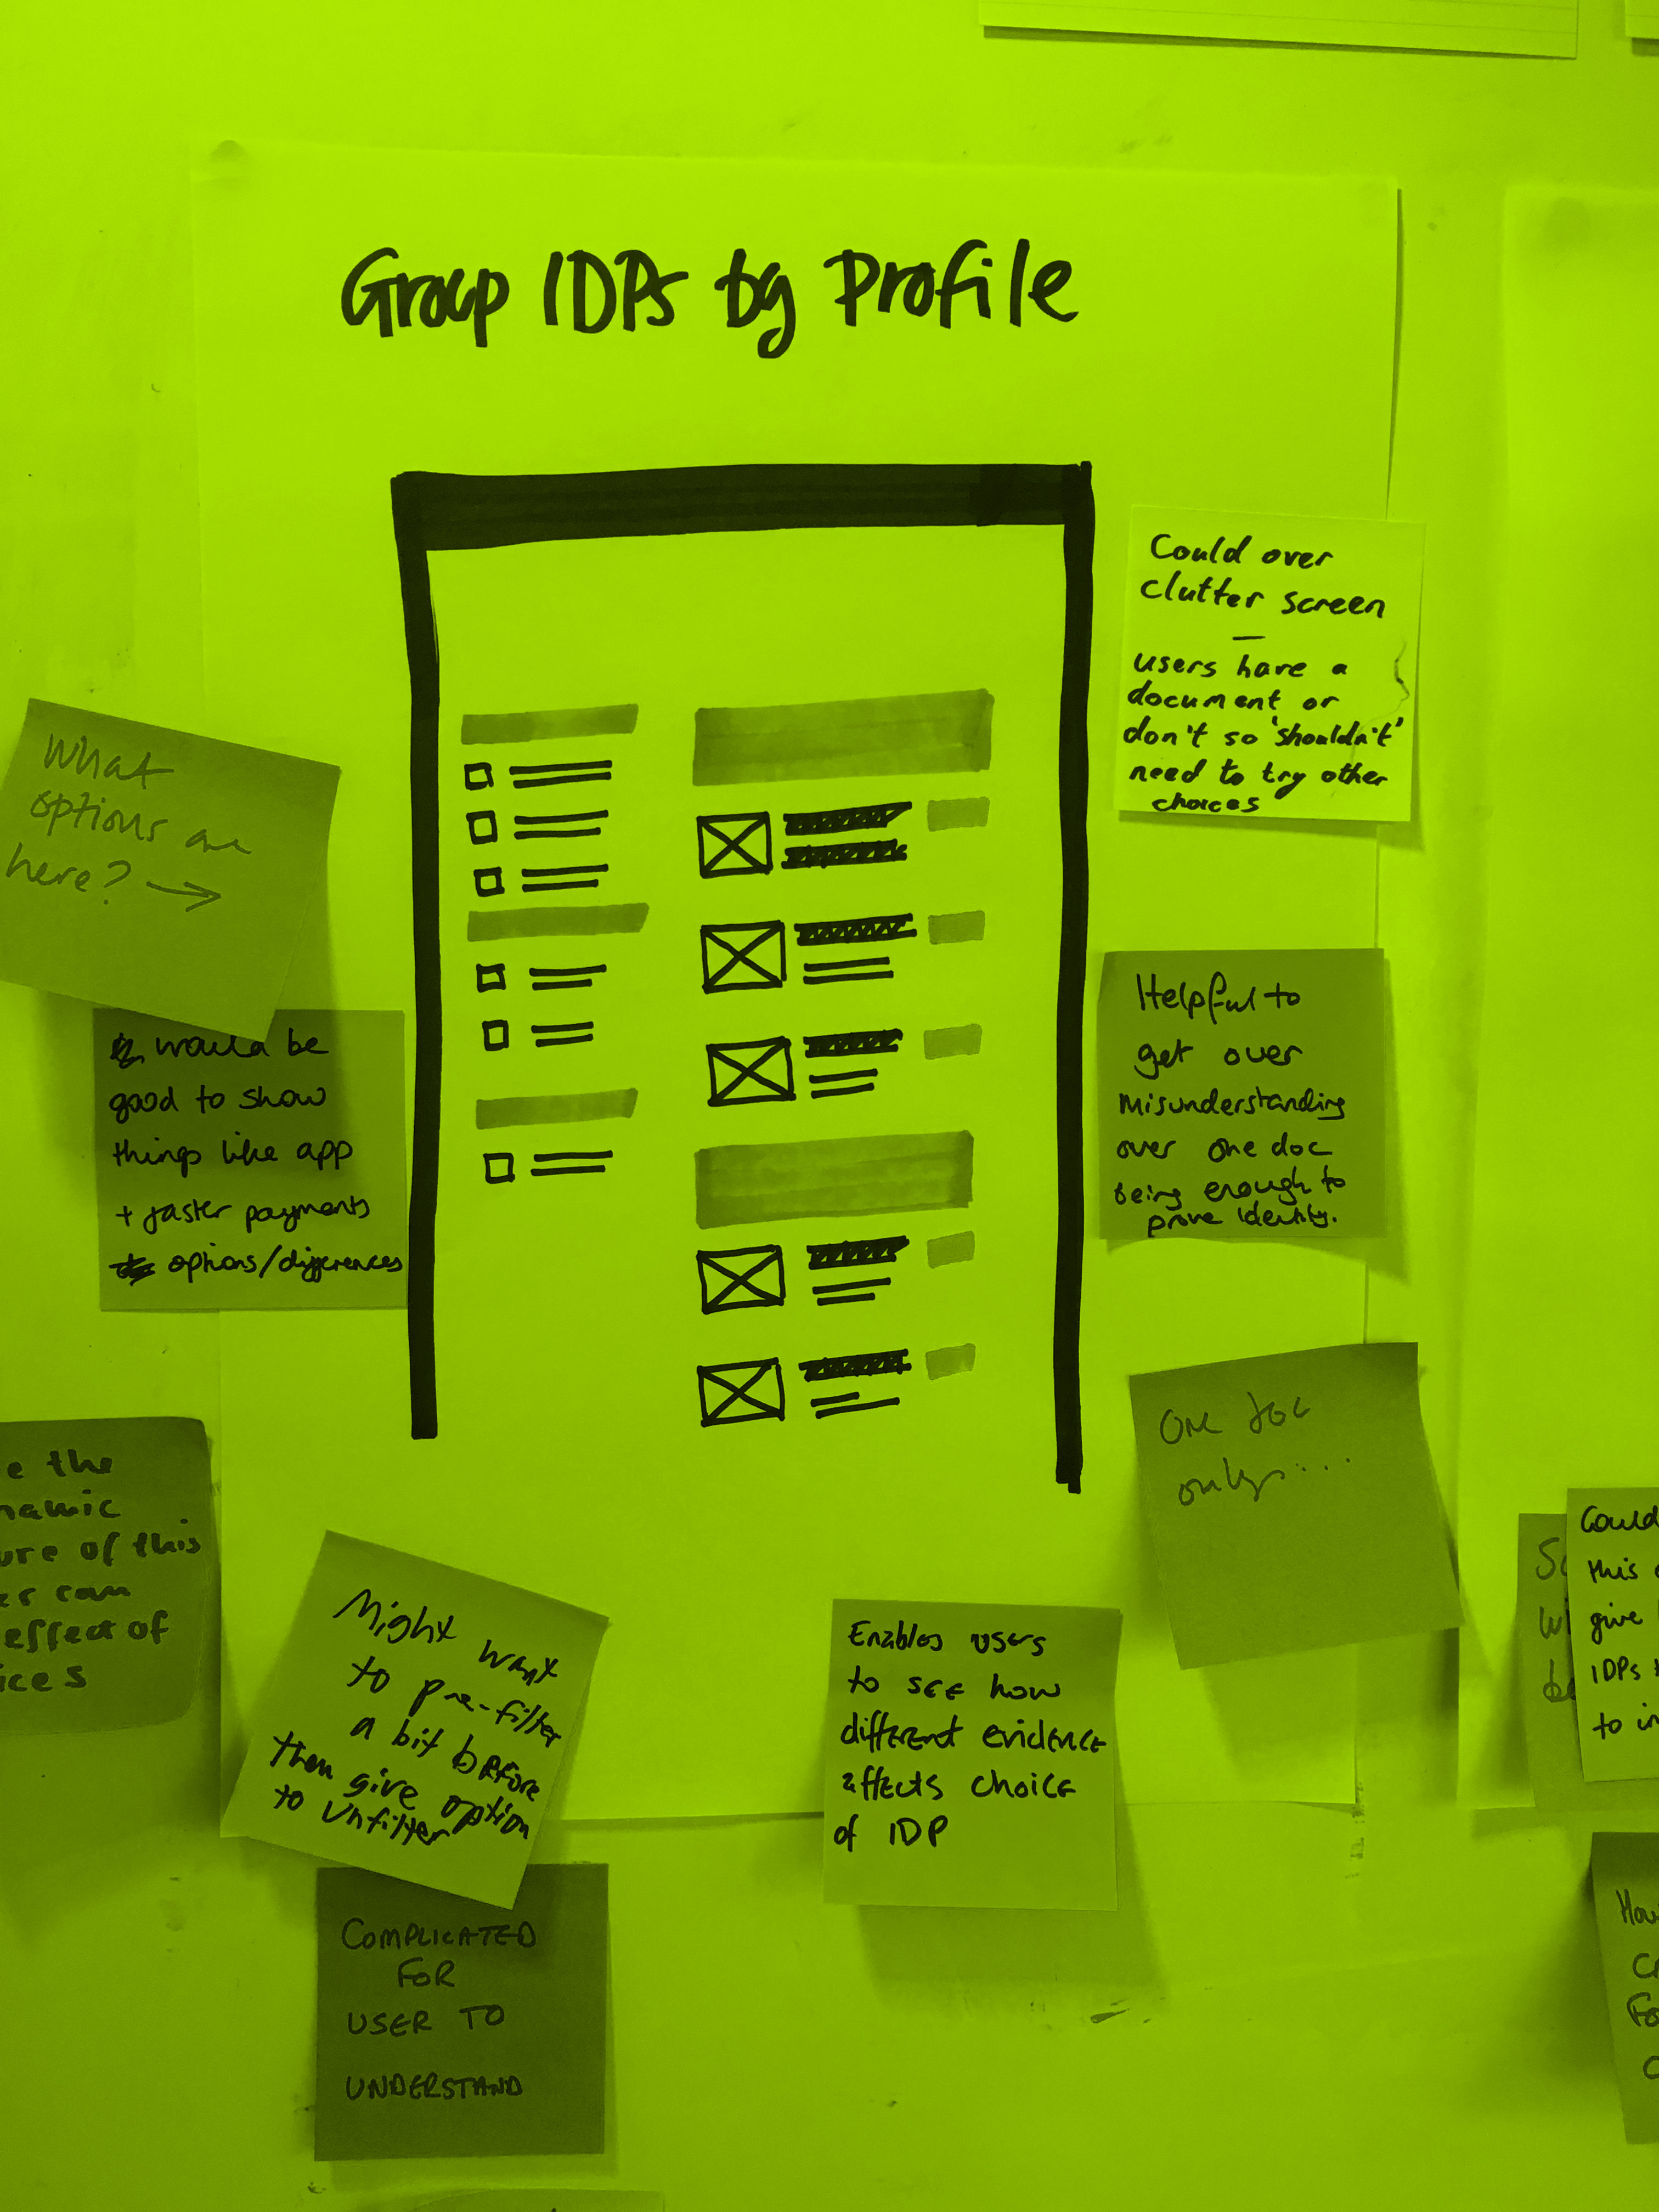 Group IDPs by Profile
Could over
clutter screen
—
users have a
document or
don't so 'shouldn't'
need to try other
choices
What
options are
here? →
would be
good to show
things like app
+ faster payments
options/differences
Helpful to
get over
misunderstanding
over one doc
being enough to
prove identity.
One doc
only...
e the
namic
ure of this
er can
effect of
ices
Might want
to pre-filter
a bit before
then give option
to unfilter
Enables users
to see how
different evidence
affects choice
of IDP
COMPLICATED
FOR
USER TO
UNDERSTAND
Could
this
give
IDPs
to in
How